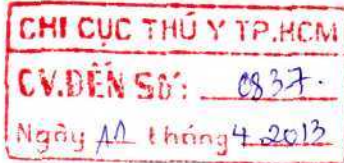 CHI CỤC THÚ Y TP.HCM
CV.ĐẾN SỐ: 0837.
Ngày 11 tháng 4.2013